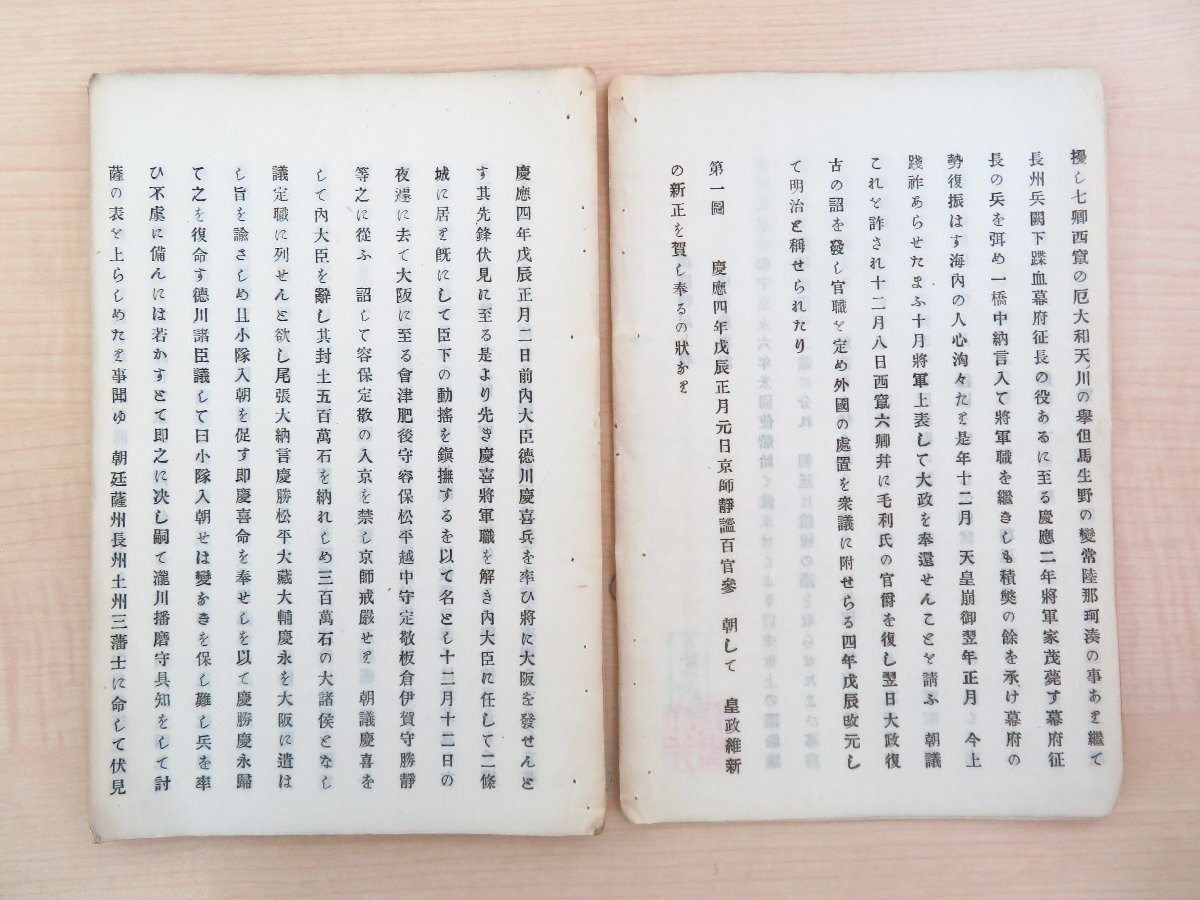 擾し七卿西竄の厄大和天ノ川の擧但馬生野の變常陸那珂湊の事あり繼て
長州兵闕下蹀血幕府征長の役あるに至る慶應二年將軍家茂薨す幕府征
長の兵を弭め一橋中納言入て將軍職を繼きしも積弊の餘を承け幕府の
勢復振はす海內の人心洶々たり是年十二月　天皇崩御翌年正月　今上
踐祚あらせたまふ十月將軍上表して大政を奉還せんことを請ふ　朝議
これを許され十二月八日西竄六卿幷に毛利氏の官爵を復し翌日大政復
古の詔を發し官職を定め外國の處置を衆議に附せらる四年戊辰改元し
て明治と稱せられたり
第一圖　慶應四年戊辰正月元日京師靜謐百官參　朝して　皇政維新
の新正を賀し奉るの狀かり
慶應四年戊辰正月二日前內大臣德川慶喜兵を率ひ將に大阪を發せんと
す其先鋒伏見に至る是より先き慶喜將軍職を解き內大臣に任して二條
城に居り旣にして臣下の動搖を鎭撫するを以て名とし十二月十二日の
夜遽に去て大阪に至る會津肥後守容保松平越中守定敬板倉伊賀守勝靜
等之に從ふ　詔して容保定敬の入京を禁し京師戒嚴せり　朝議慶喜を
して內大臣を辭し其封土五百萬石を納れしめ三百萬石の大諸侯となし
議定職に列せんと欲し尾張大納言慶勝松平大藏大輔慶永を大阪に遣は
し旨を諭さしめ且小隊入朝を促す卽慶喜命を奉せしを以て慶勝慶永歸
て之を復命す德川諸臣議して曰小隊入朝せは變かきを保し難し兵を率
ひ不虞に備んには若かすとて卽之に決し嗣て瀧川播磨守具知をして討
薩の表を上らしめたり事聞ゆ　朝廷薩州長州土州三藩士に命して伏見